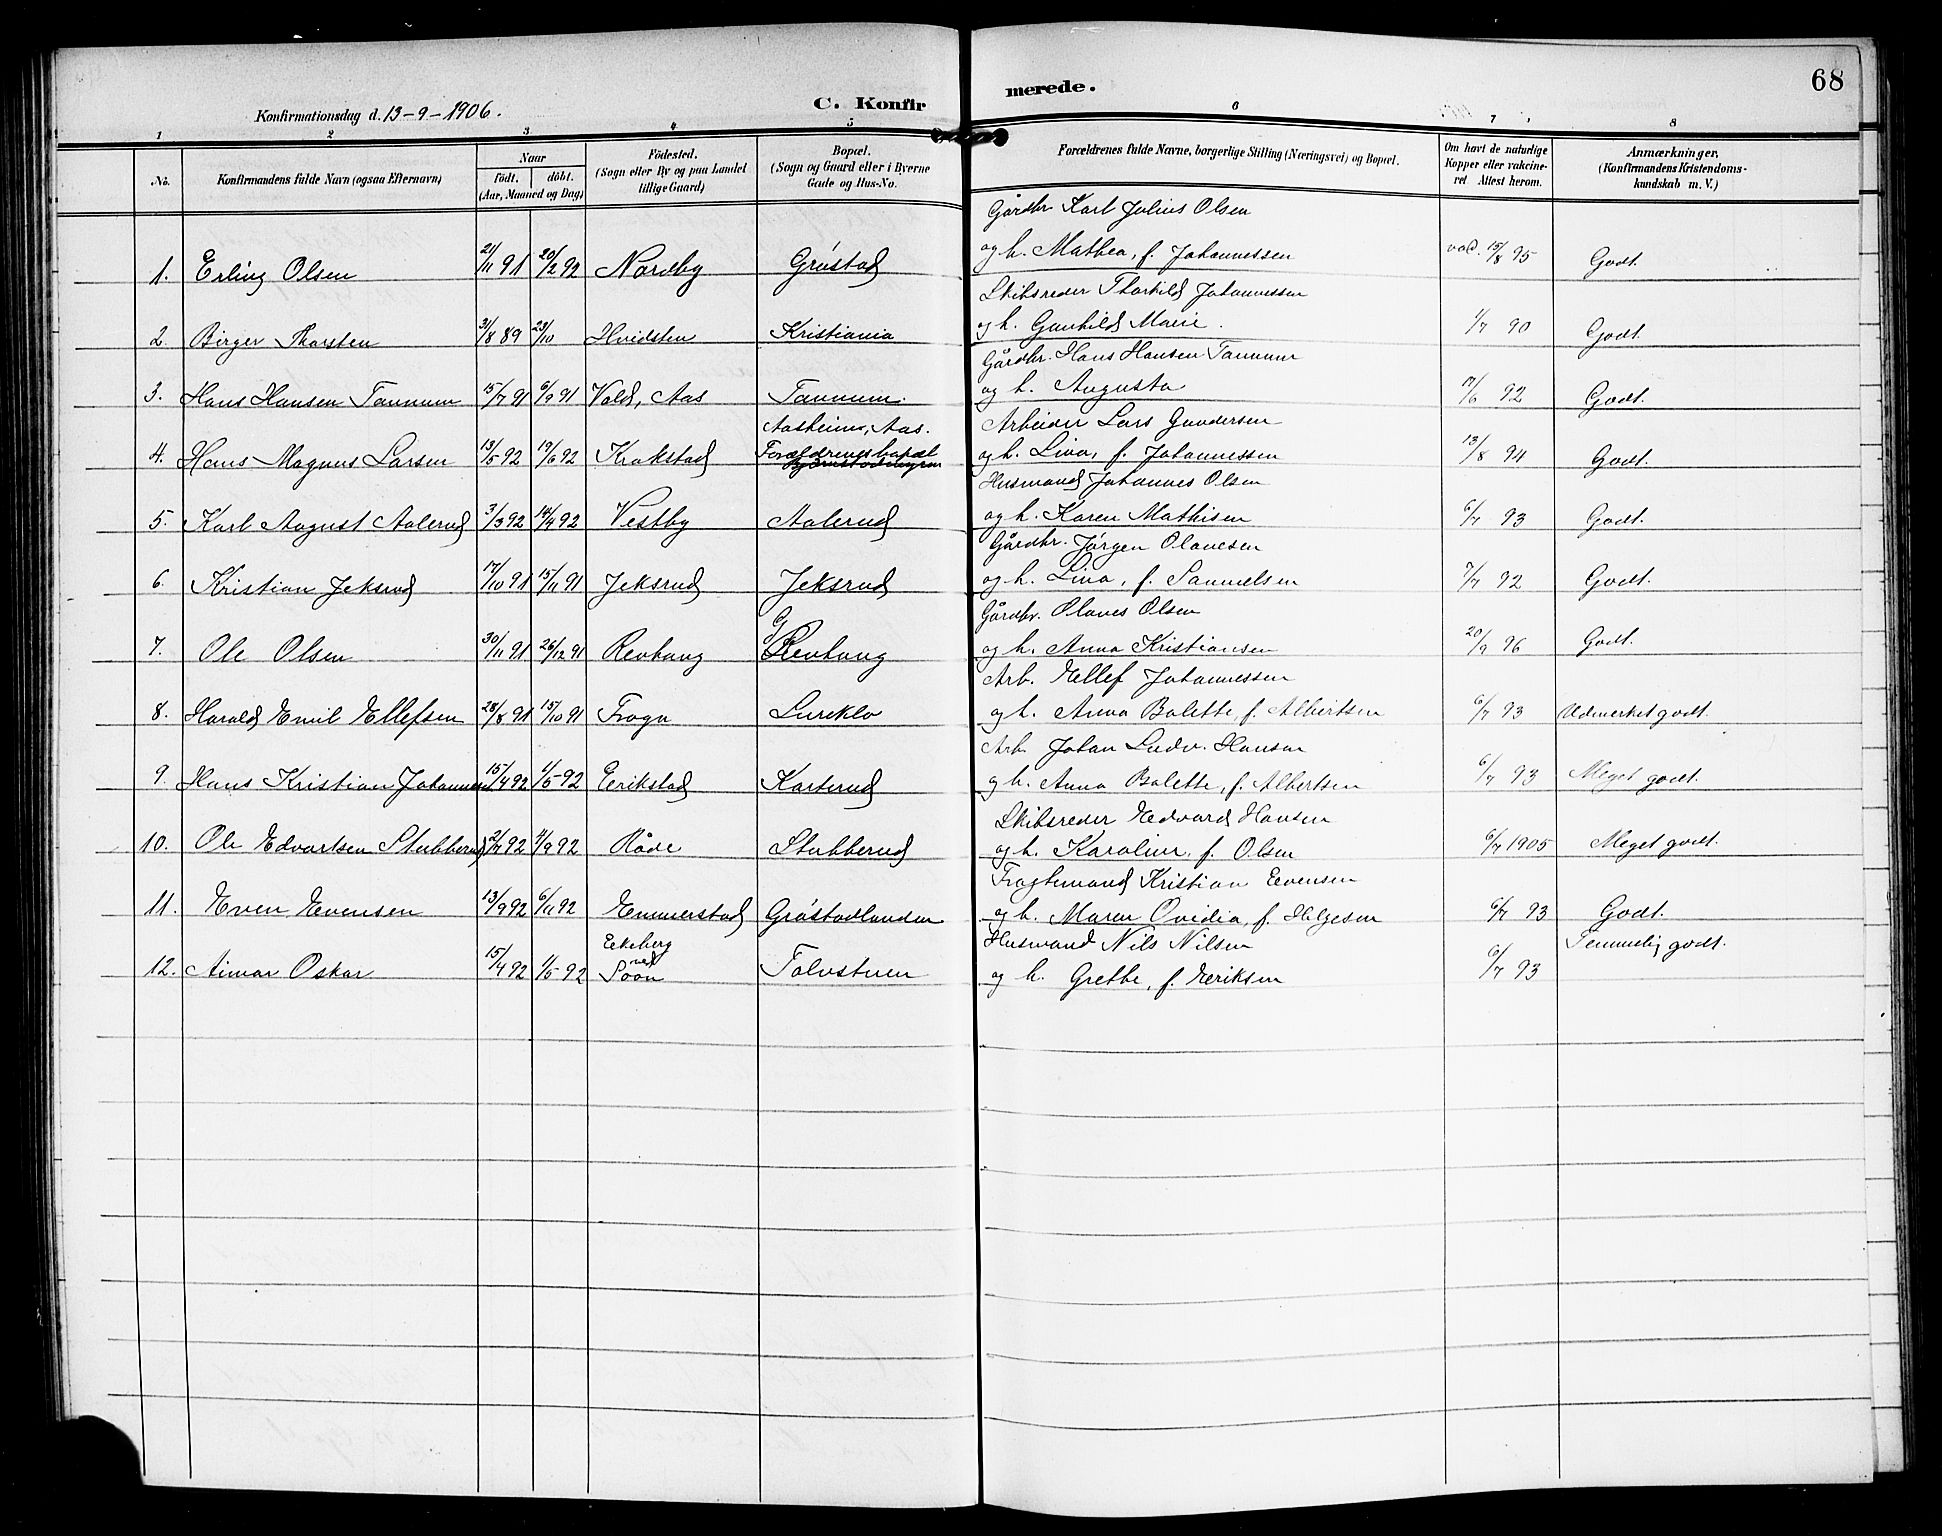 68
C. Konfirmerede.
Konfirmationsdag d. 13-9-1906.
1 2 3 4 5 6 7 8
No. Konfirmandens fulde Navn (ogsaa Efternavn) Naar født. døbt. (Aar, Maaned og Dag) Fødested. (Sogn eller By og paa Landet tillige Gaard) Bopæl. (Sogn og Gaard eller i Byerne Gade og Hus-No. Forældrenes fulde Navne, borgerlige Stilling (Næringsvei) og Bopæl. Om havt de naturlige Kopper eller vakcineret Attest herom. Anmærkninger. (Konfirmandens Kristendomskundskab m. V.)
Gårdbr Karl Julius Olsen
1. Erling Olsen 21/11 91 20/2 92 Nordby Grøstad og h. Mathea, f. Johannessen vac. 15/8 95 Godt.
Skibsreder Thorkild Johannessen
2. Birger Thorsten 31/8 89 23/10 Hvidsten Kristiania og h. Gunhild Marie. 1/7 90 Godt.
Gårdbr. Hans Hansen Tannum
3. Hans Hansen Tannum 15/7 91 6/9 91 Vold, Aas Tannum. og h. Augusta 17/6 92 Godt.
Aasheim, Aas. Arbeider Lars Gundersen
4. Hans Magnus Larsen 13/5 92 19/6 92 Krokstad Forældrenes bopæl og h. Lina, f. Johannessen 13/8 94 Godt.
Husmand Johannes Olsen
5. Karl August Aalerud 3/3 92 14/4 92 Vestby Aalerud og h. Karen Mathisen 6/7 93 Godt.
Gårdbr. Jørgen Olavesen
6. Kristian Jeksrud 17/10 91 15/11 91 Jeksrud Jeksrud og h. Lina, f. Samuelsen 7/7 92 Godt.
Gårdbr. Olaves Olsen
7. Ole Olsen 30/11 91 26/12 91 Revhaug Revhaug og h. Anna Kristiansen 20/9 96 Godt.
Arb. Ellef Johannessen
8. Harald Emil Ellefsen 28/8 91 15/10 91 Frogn Lureklo og h. Anna Balette, f. Albertsen 6/7 93 Udmerket godt.
Arb. Johan Ludv. Hansen
9. Hans Kristian Johannes 15/4 92 1/5 92 Eerikstad Karterud og h. Anna Balette, f. Albertsen 6/7 93 Meget godt.
Skibsreder Edvard Hansen
10. Ole Edvartsen Stubberud 2/7 92 4/9 92 Råde Stubberud og h. Karoline, f. Olsen 6/7 1905 Meget godt.
Fragtemand Kristian Evensen
11. Even Evensen 13/9 92 6/11 92 Emmerstad Grøstadlanden og h. Maren Ovidia, f. Helgesen 6/7 93 Godt.
Ekeberg Husmand Nils Nilsen Temmelig godt.
12. Aimar Oskar 15/4 92 1/5 92 ved Soon Tolvstuen og h. Grethe, f. Eeriksen 6/7 93